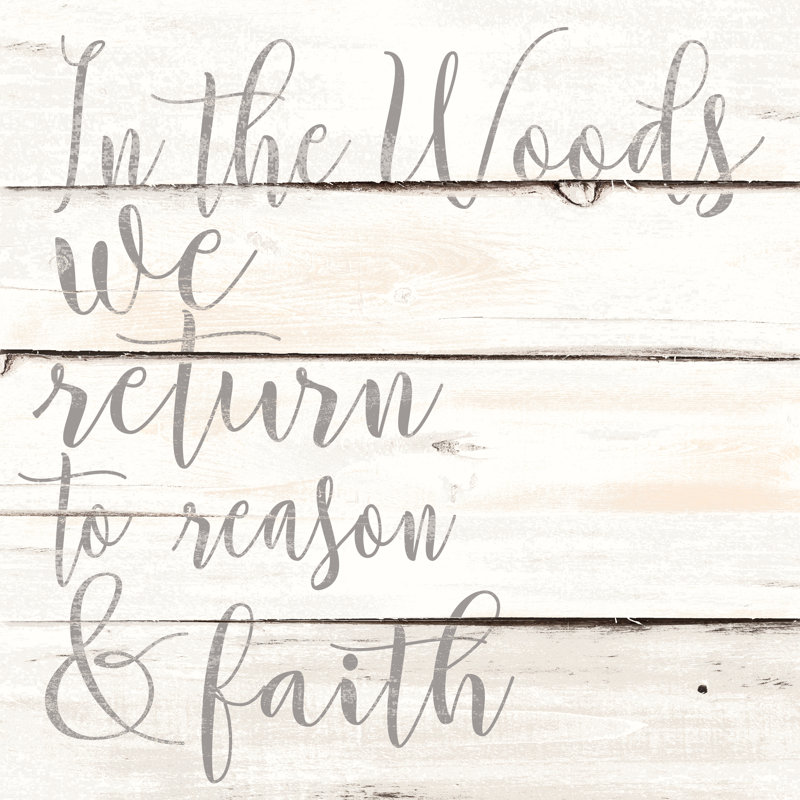 In the Woods
we
return
to reason
& faith